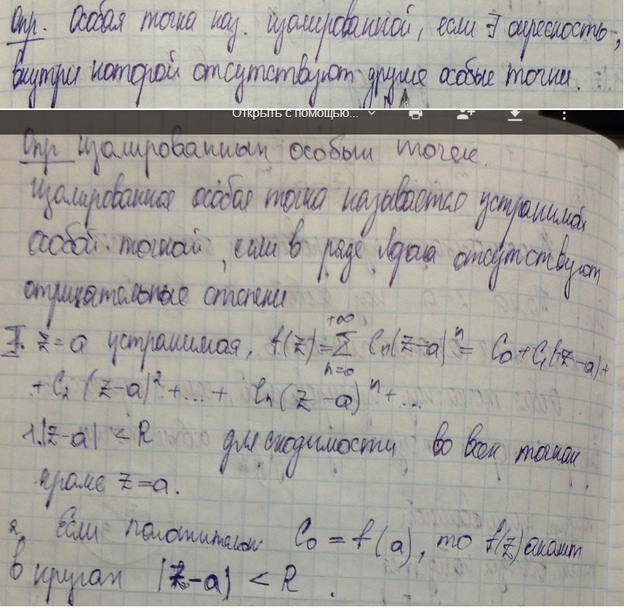 Опр. Особая точка наз. изолированной, если ∃ окресность,
внутри которой отсутствуют другие особые точки.
Открыть с помощью...
Опр изолированных особых точек.
Изолированная особая точка называется устранимой
особой точкой, если в ряде Лорана отсутствуют
отрицательные степени
I. z=a устранимая, f(z)=∑_{n=0}^{+∞} C_n(z-a)^n = C_0+C_1(z-a)+
+C_2(z-a)^2+...+ C_n(z-a)^n+...
1. |z-a|<R для сходимости во всех точках
кроме z=a.
2. Если C_0=f(a), то f(z)
в кругах |z-a|<R.